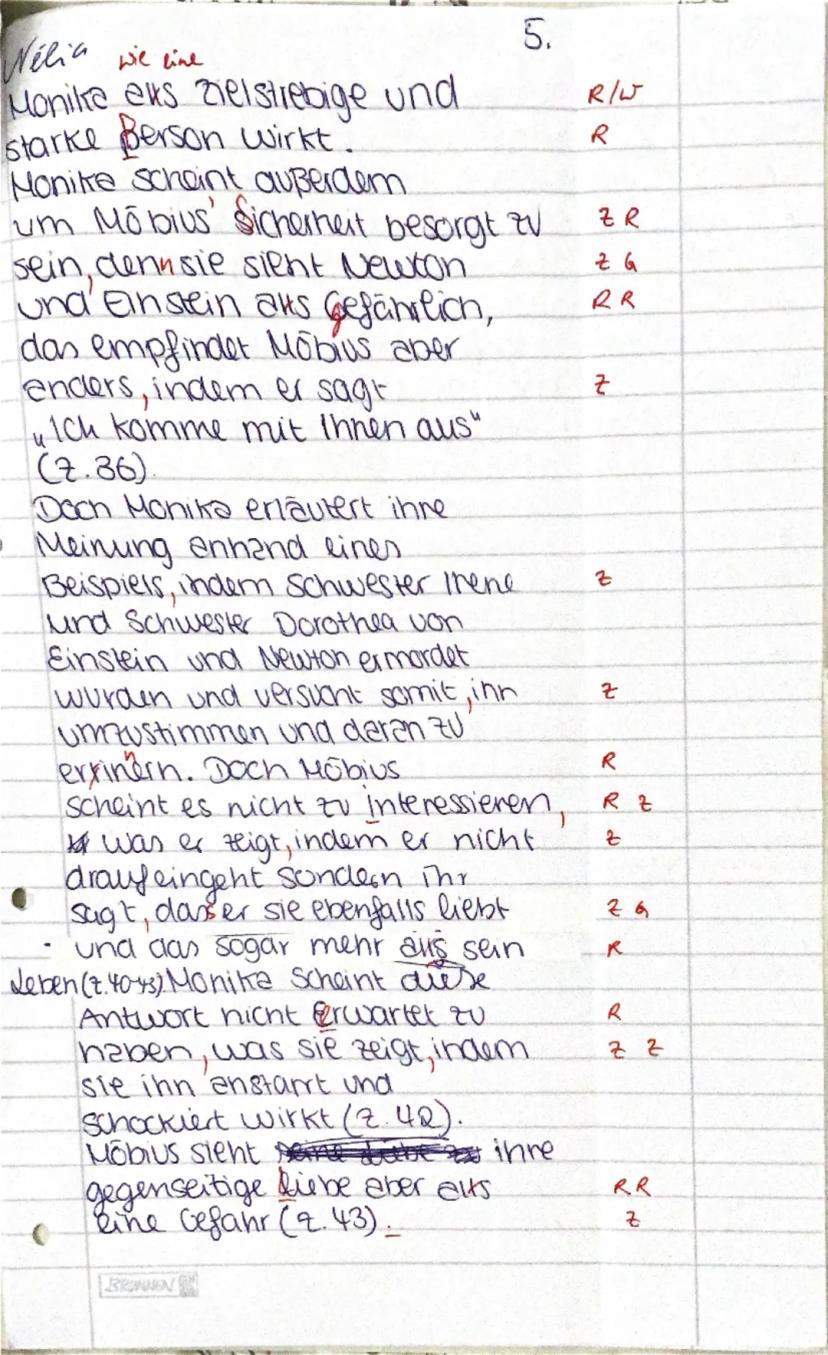 5.
Nélia wie eine
Monika als zielstrebige und R/W
starke Person wirkt. R
Monika scheint außerdem
um Möbius' Sicherheit besorgt zu Z R
sein, denn sie sieht Newton Z G
und Einstein als Gefährlich, R R
das empfindet Möbius aber
anders, indem er sagt Z
„Ich komme mit Ihnen aus“
(Z.36).
Doch Monika erläutert ihre
Meinung anhand eines
Beispiels, indem Schwester Irene Z
und Schwester Dorothea von
Einstein und Newton ermordet
wurden und versucht somit, ihn Z
umzustimmen und daran zu
erinnern. Doch Möbius R
scheint es nicht zu interessieren, R Z
was er zeigt, indem er nicht Z
draufeingeht sondern ihr
sagt, dass er sie ebenfalls liebt Z G
und das sogar mehr als sein R
Leben (Z.40-43) Monika scheint diese
Antwort nicht erwartet zu R
haben, was sie zeigt, indem Z Z
sie ihn anstarrt und
schockiert wirkt (Z.42).
Möbius sieht ihre
gegenseitige Liebe aber als R R
eine Gefahr (Z.43). Z
BRUNNEN